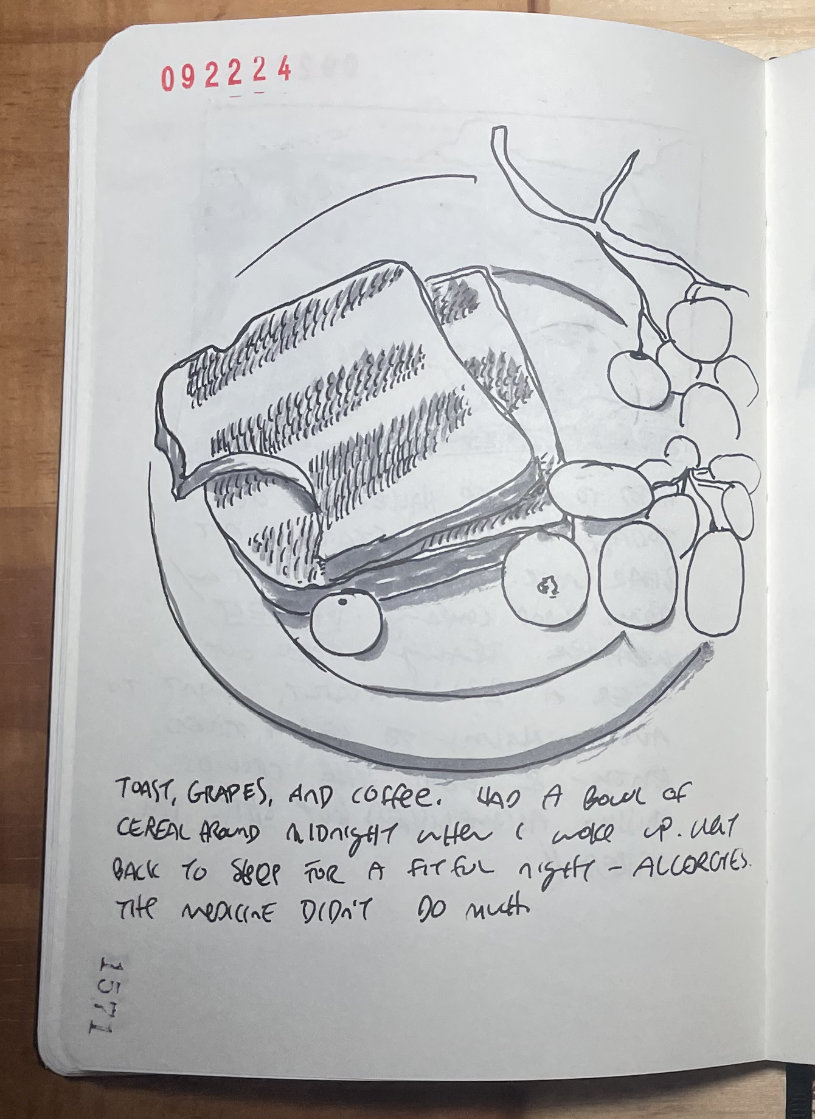 092224
TOAST, GRAPES, AND COFFEE. HAD A BOWL OF
CEREAL AROUND MIDNIGHT WHEN I WOKE UP. WENT
BACK TO SLEEP FOR A FITFUL NIGHT – ALLERGIES.
THE MEDICINE DIDN'T DO MUCH
1571